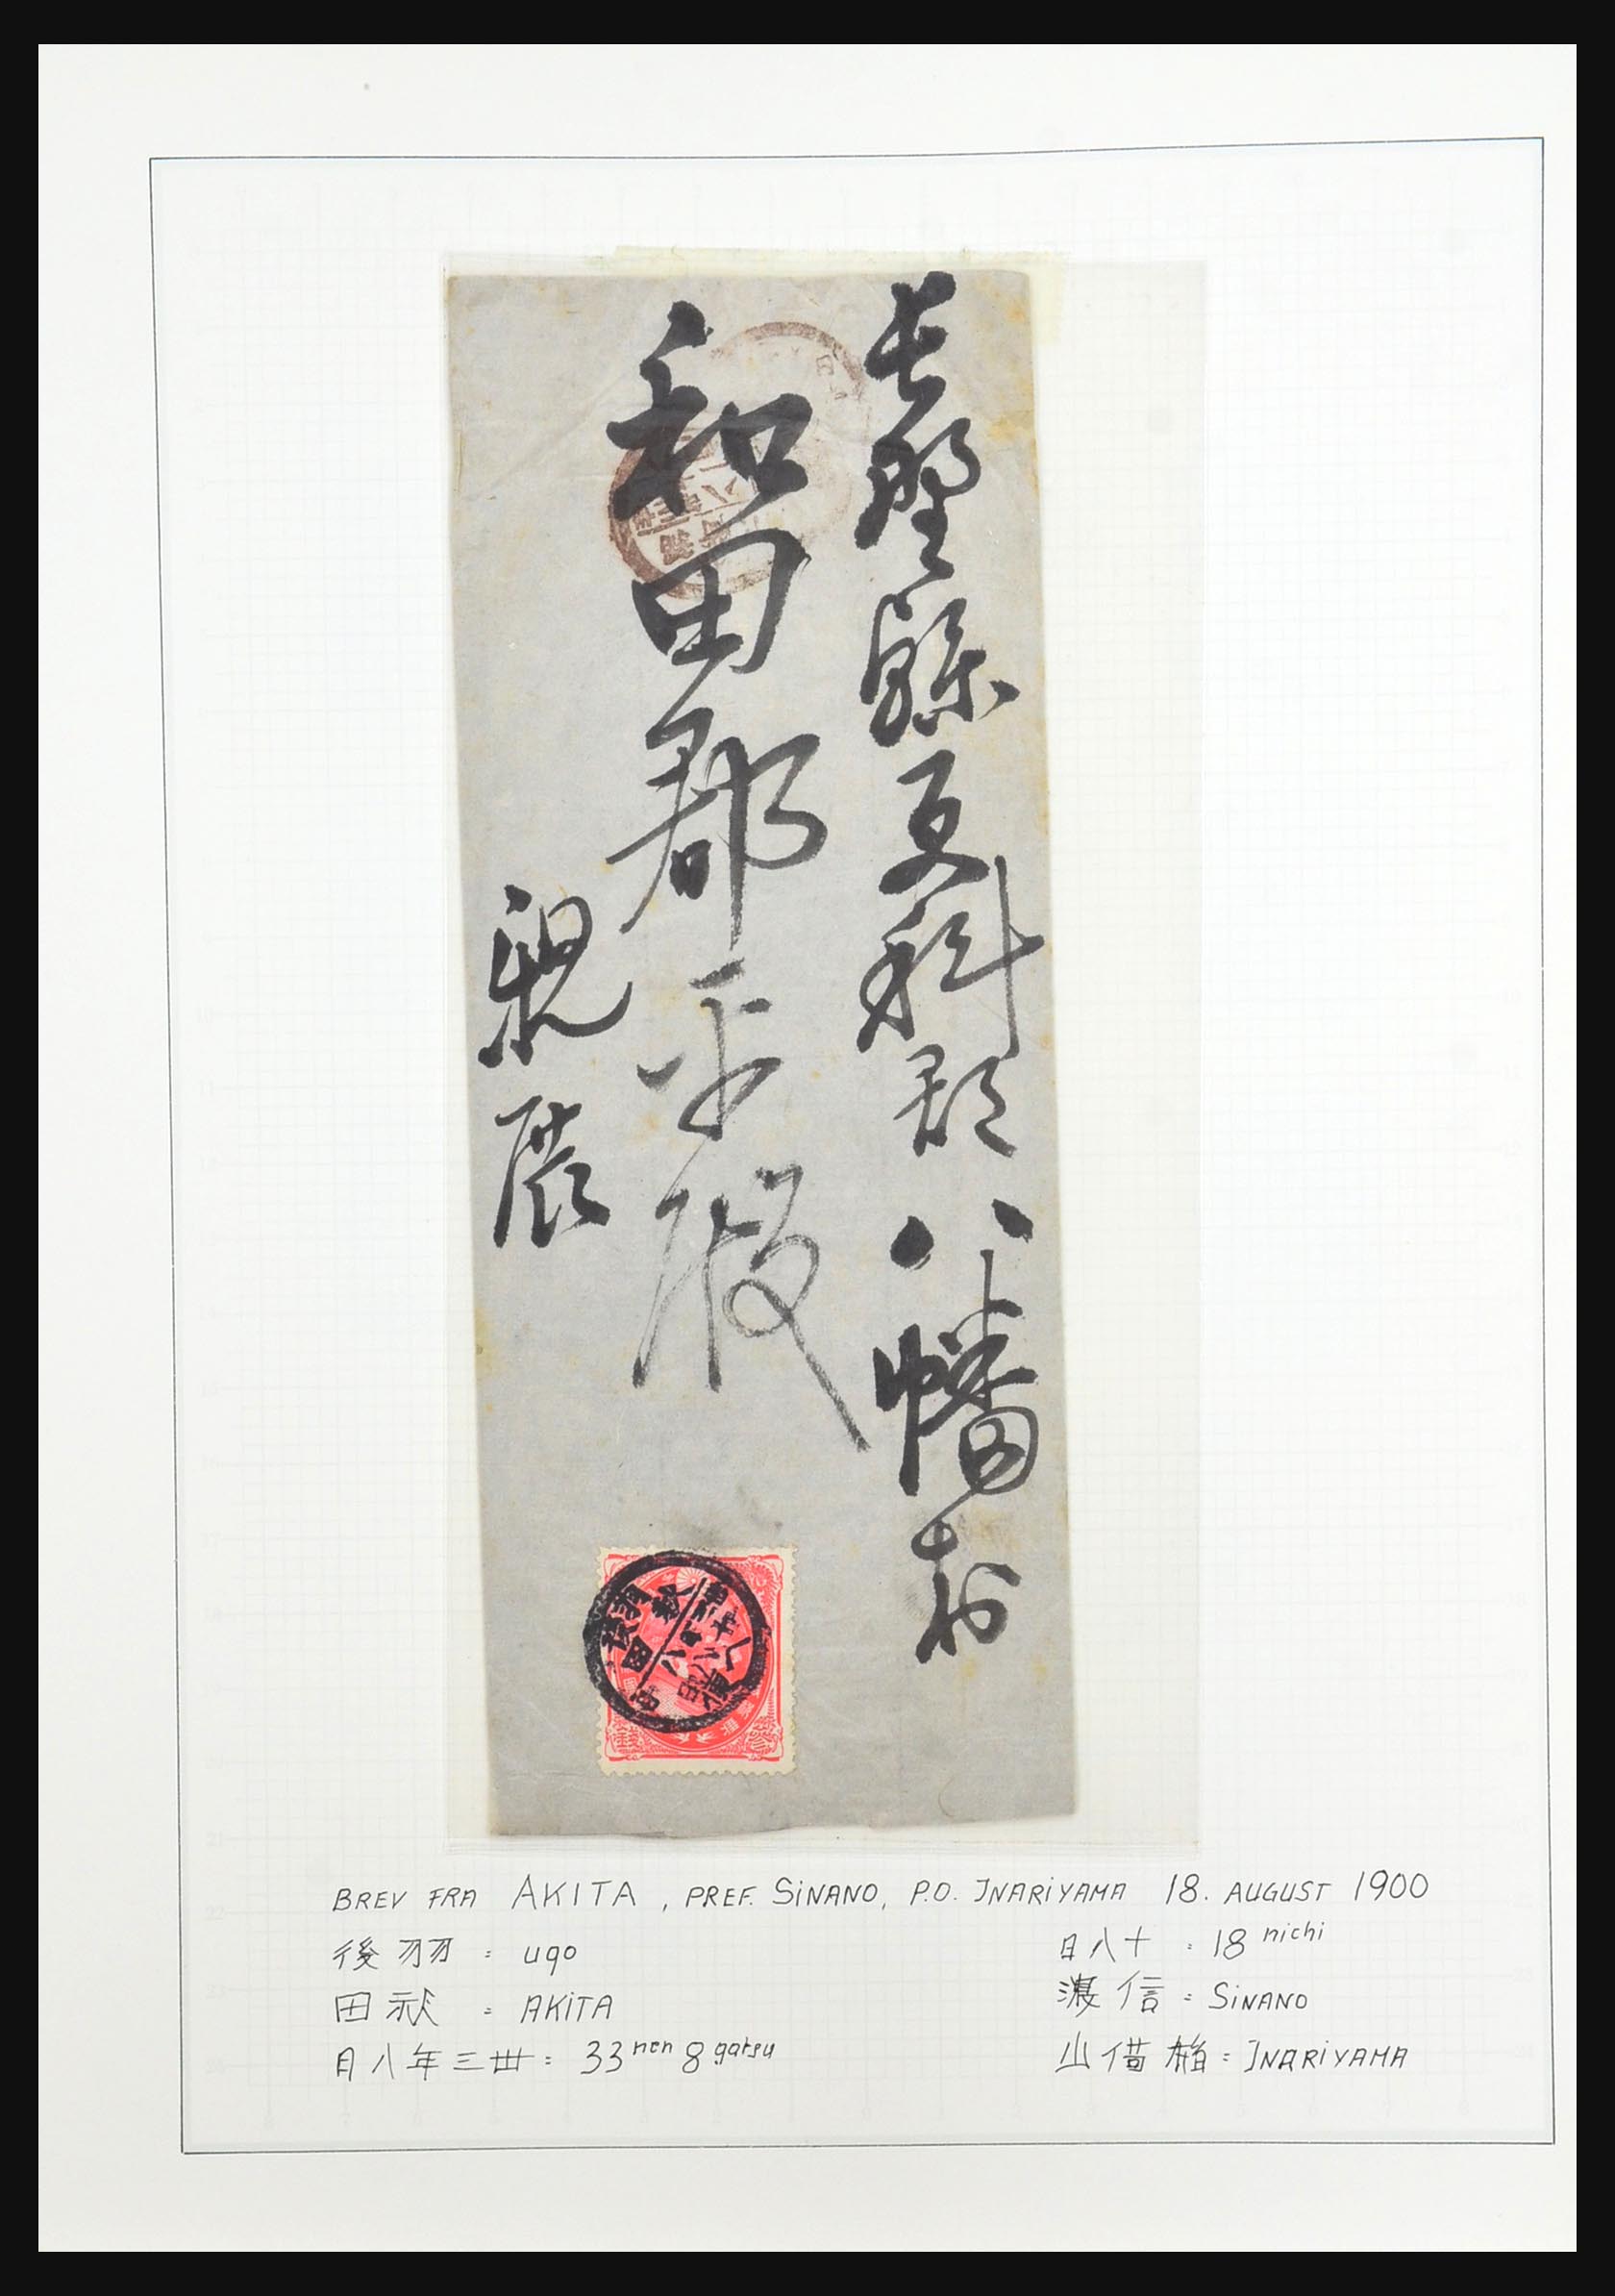 長野縣更科郡八幡村
和田郡平殿
親展
BREV FRA AKITA, PREF. SiNANO, P.O. INARiYAMA 18. AUGUST 1900
後羽 = ugo
田秋 = AKiTA
月八年三卅 = 33 nen 8 gatsu
日八十 = 18 nichi
濃信 = SiNANO
山 = INARiYAMA